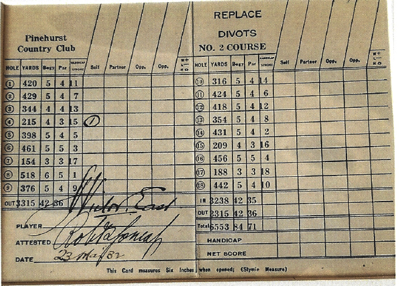 Pinehurst
Country Club
HOLE YARDS Bogy Par Self Partner Opp. Opp.
1 420 5 4 11
2 429 5 4 7
3 344 4 4 13
4 215 4 3 15 1
5 398 5 4 5
6 461 5 5 3
7 154 3 3 17
8 518 6 5 1
9 376 5 4 9
OUT 3315 42 36
PLAYER
ATTESTED
DATE
REPLACE
DIVOTS
NO. 2 COURSE
HOLE YARDS Bogy Par Self Partner Opp. Opp.
10 316 5 4 14
11 424 5 4 6
12 418 5 4 12
13 354 5 4 8
14 431 5 4 2
15 209 4 3 16
16 456 5 5 4
17 188 3 3 18
18 442 5 4 10
IN 3238 42 35
OUT 3315 42 36
Total 6553 84 71
HANDICAP
NET SCORE
This Card measures Six Inches when opened; (Stymie Measure)